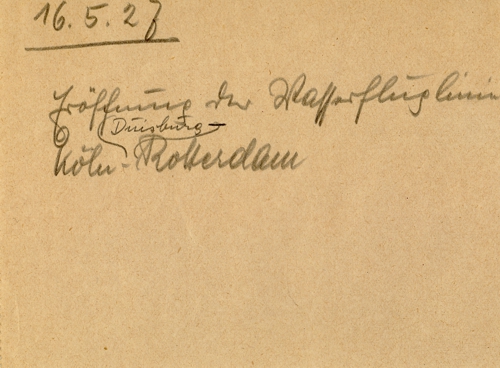 16.5.27
Eröffnung der Wasserfluglinie
Duisburg-
Köln-Rotterdam